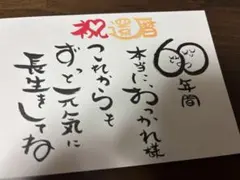 祝還暦
60年間
本当におつかれ様
これからも
ずっと元気に
長生きしてね